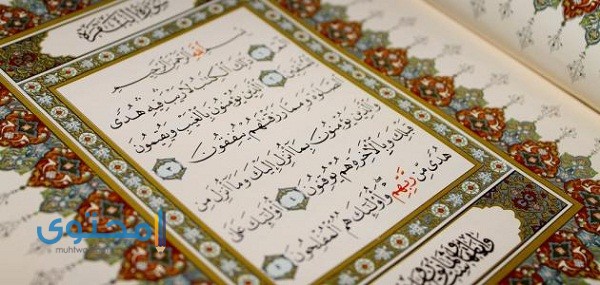 سُورَةُ الْبَقَرَةِ
بِسْمِ اللَّهِ الرَّحْمَٰنِ الرَّحِيمِ
الٓمٓ ۝١ ذَٰلِكَ الْكِتَٰبُ لَا رَيْبَ فِيهِ هُدًى
لِّلْمُتَّقِينَ ۝٢ الَّذِينَ يُؤْمِنُونَ بِالْغَيْبِ وَيُقِيمُونَ
الصَّلَوٰةَ وَمِمَّا رَزَقْنَٰهُمْ يُنفِقُونَ ۝٣
وَالَّذِينَ يُؤْمِنُونَ بِمَا أُنزِلَ إِلَيْكَ وَمَا أُنزِلَ مِن
قَبْلِكَ وَبِالْآخِرَةِ هُمْ يُوقِنُونَ ۝٤ أُولَٰئِكَ عَلَىٰ
هُدًى مِّن رَّبِّهِمْ وَأُولَٰئِكَ هُمُ الْمُفْلِحُونَ ۝٥
محتوى